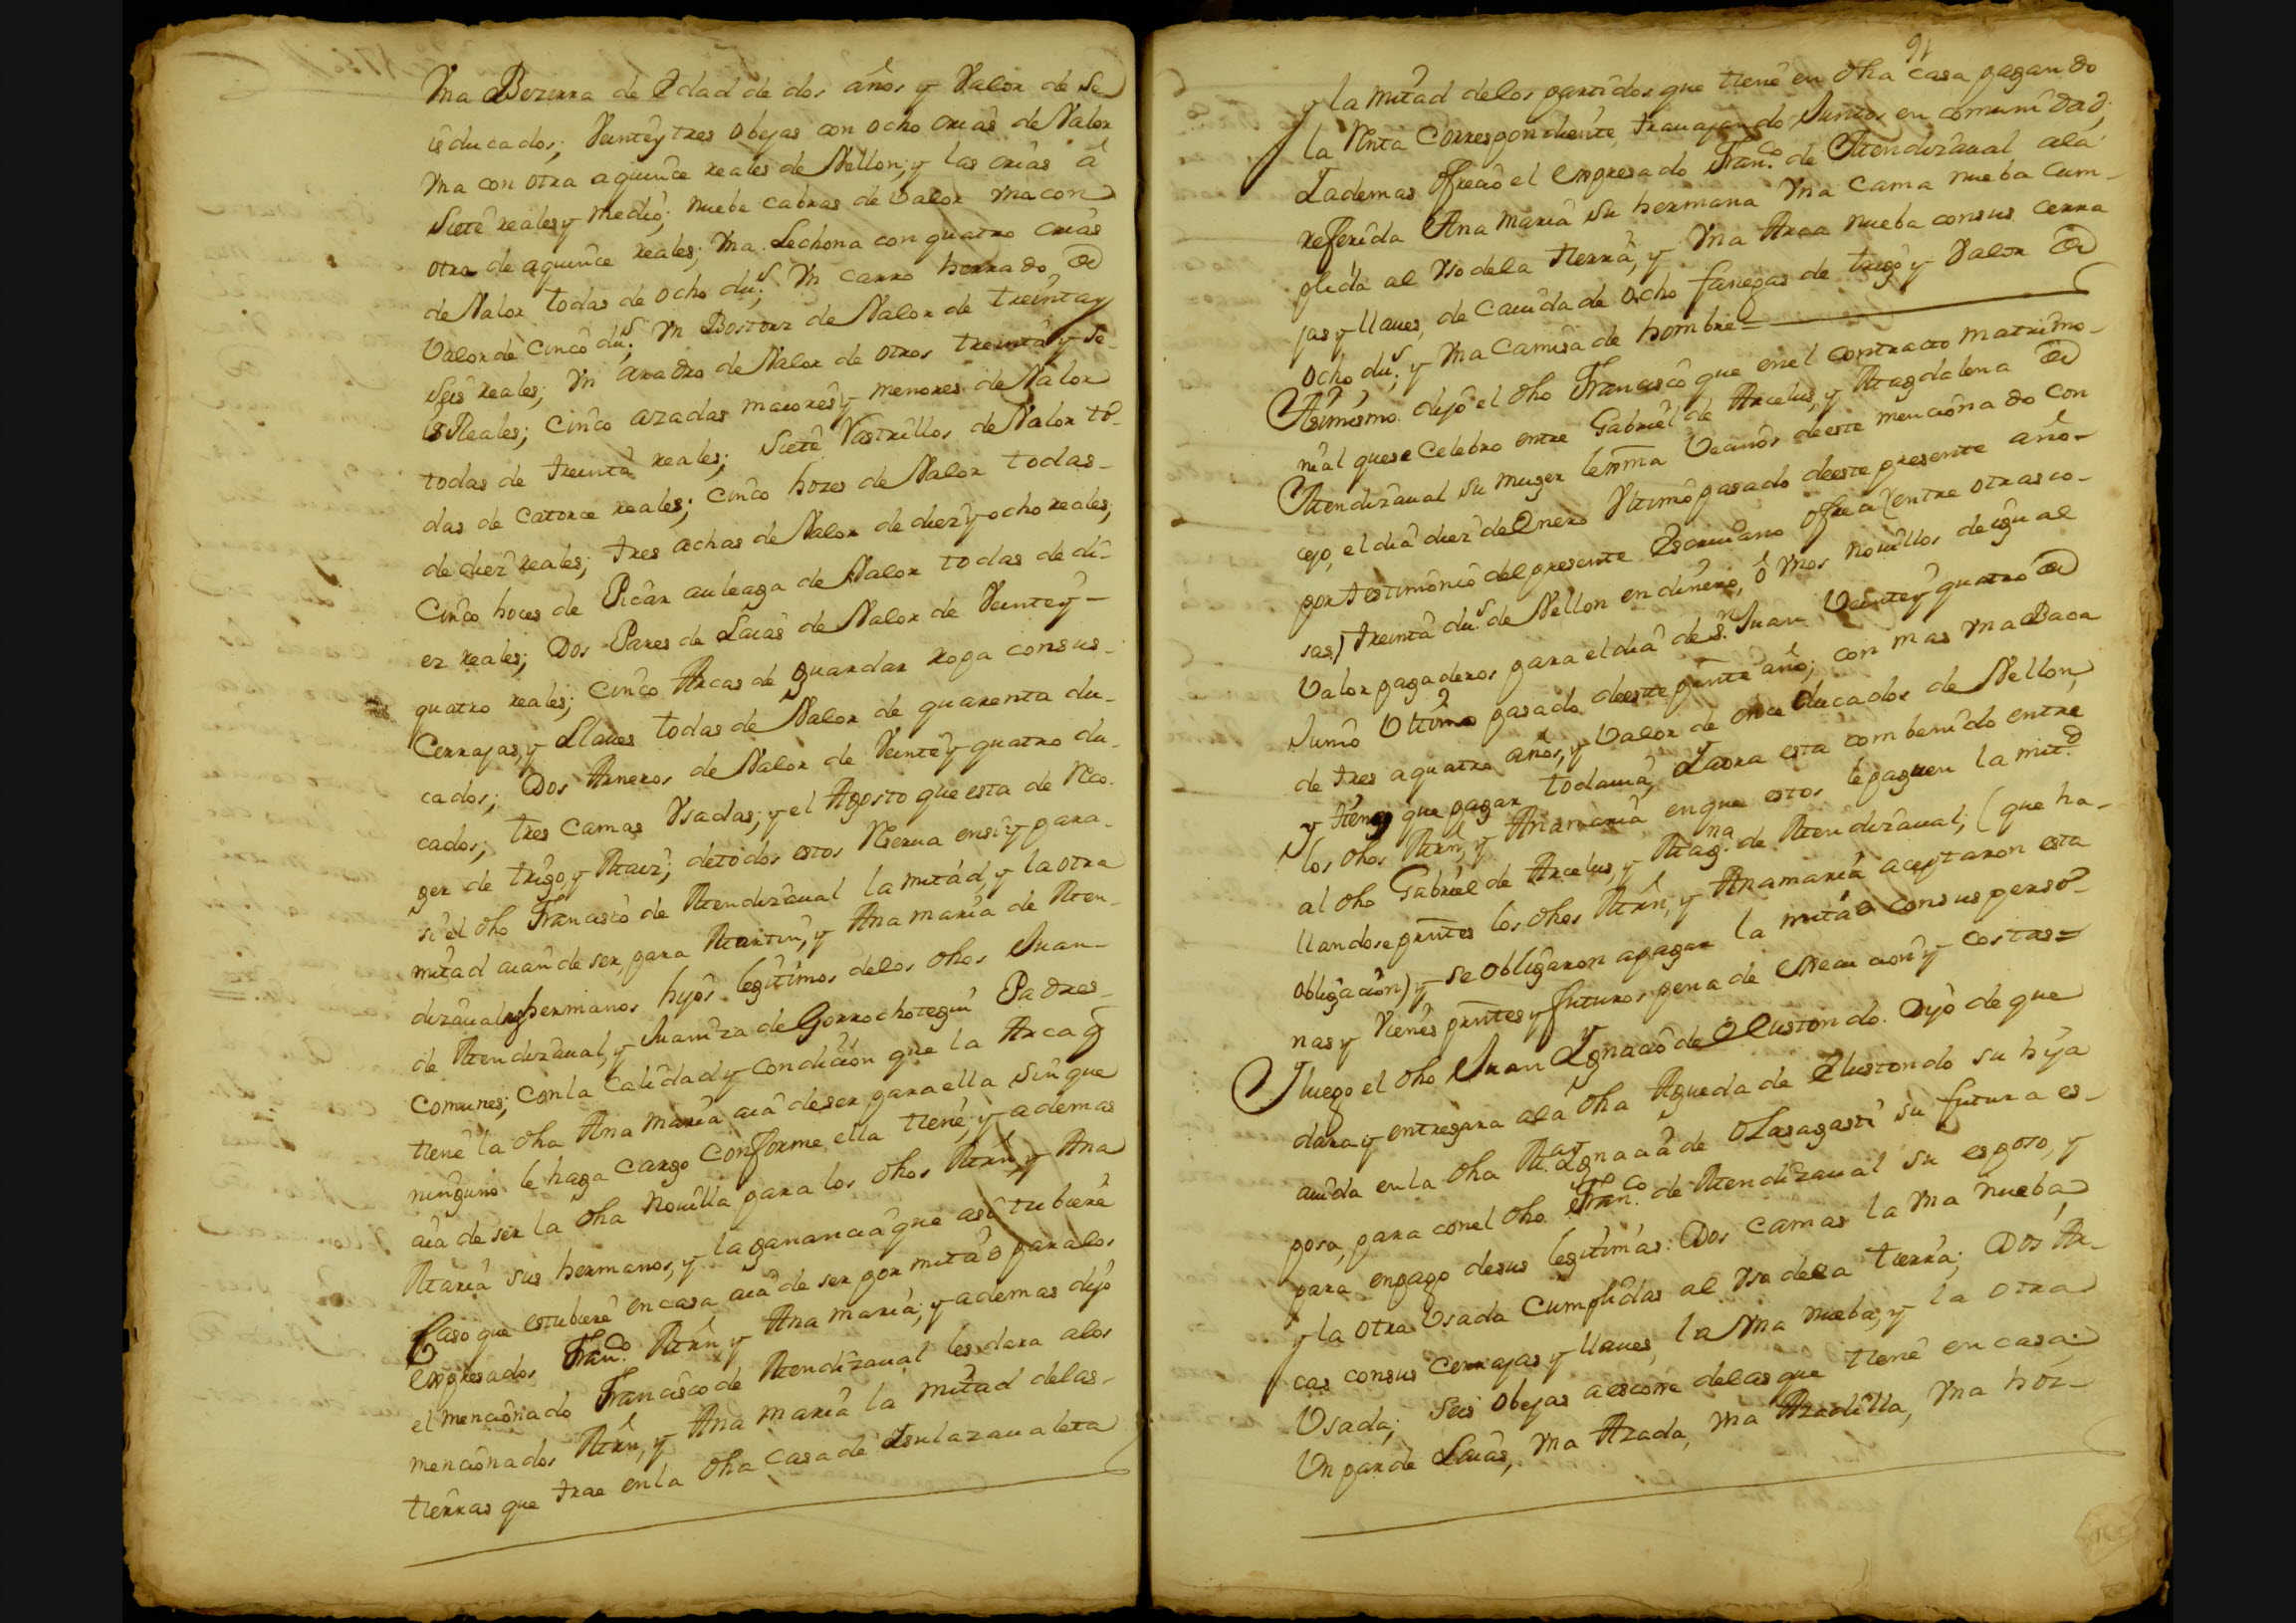 Vna Bezerra de Edad de dos años y Valor de Se
is ducados; Veinte y tres obejas con ocho crias de Valor
Vna con otra a quince reales de Vellon; y las crias â
Siete reales y medio; nuebe cabras de Valor Vna con
otra de a quince reales; Vna Lechona con quatro crias
de Valor todas de ocho du.s; Vn carro herrado, de
Valor de cinco du.s; Vn Bostorz de Valor de treinta y
Seis reales; Vn aradro de Valor de otros treinta y se-
is Reales; cinco azadas maiores y menores de Valor
todas de treinta reales; Siete Rastrillos de Valor to-
das de catorce reales; cinco hozes de Valor todas
de diez reales; tres achas de Valor de diez y ocho reales;
Cinco hoces de Picar auleaga de Valor todas de di-
ez reales; Dos Pares de Laias de Valor de Veinte y
quatro reales; cinco Arcas de guardar ropa con sus
Cerrajas, y Llaues todas de Valor de quarenta du-
cados; Dos Arneros de Valor de Veinte y quatro du-
cados; tres Camas Vsadas; y el Agosto que esta de Reco-
ger de trigo, y Maiz; de todos estos Reserua en si y para
si el dho Francisco de Mendizaual la mitad, y la otra
mitad aian de ser para Martin, y Ana maria de Men-
dizaual hermanos hijos legitimos de los dhos Juan
de Mendizaual, y Juaniza de Gorrochotegui Padres
Comunes; con la Calidad y Condicion que la Arca q
tiene la dha Ana Maria aia de ser para ella sin que
ninguno le haga cargo conforme ella tiene; y ademas
aia de ser la dha Nouilla para los dhos Mrn, y Ana
Maria sus hermanos, y la ganancia que asi tubiere
Caso que estubiere en casa aia de ser por mitad para los
expresados Fran.co Mrn y Ana maria; y ademas dijo
el mencionado Francisco de Mendizaual les dara a los
mencionados Mrn, y Ana maria la mitad de las
tierras que trae en la dha Casa de Isulazaualeta
91
y la mitad de los partidos que tiene en dha casa pagando
la Renta correspondiente, trauajando Juntos en comunidad;
I ademas ofrecio el expresado Fran.co de Mendizaual a la
referida Ana maria su hermana Vna cama nueba cum-
plida al Vso de la tierra, y Vna Arca nueba con sus cerra
jas y llaues, de cauida de ocho fanegas de trigo y Valor de
ocho du.s; y Vna Camisa de hombre
Asimismo dijo el dho Francisco que en el contracto matrimo-
nial que se Celebro entre Gabriel de Arcelus, y Magdalena de
Mendizaual su muger lexma Vecinos de este mencionado con
cejo, el dia diez de Enero Vltimo pasado de este presente año
por testimonio del presente Escriuano ofrecí (entre otras co-
sas) treinta du.s de Vellon en dinero, ô Vnos nouillos de igual
Valor pagaderos para el dia de S.n Juan Veinte y quatro de
Junio Vltimo pasado de este pnte año; con mas Vna Baca
de tres a quatro años, y Valor de once ducados de Vellon,
y tengo que pagar todauia, y aora esta combenido entre
los dhos Mrn, y Ana maria en que estos le paguen la mit.d
al dho Gabriel de Arcelus, y Mag.na de Mendizaual; (que ha-
llandose pntes los dhos Mrn, y Ana maria aceptaron esta
obligacion) y se obligaron a pagar la mitad con sus perso-
nas y Vienes pntes y futuros pena de execucion y costas=
I luego el dho Juan Ygnacio de Elustondo Dijo de que
dara y entregara a la dha Agueda de Elustondo su hija
auida en la dha M.a Ygnacia de Olasagasti su futura es-
posa, para con el dho Fran.co de Mendizaual su esposo, y
para en pago de sus legitimas: Dos camas la Vna nueba,
y la otra Vsada Cumplidas al Vso de la tierra; Dos Ar-
cas con sus Cerrajas y llaues, la Vna nueba, y la otra
Vsada; Seis obejas a escore de las que tiene en casa:
Vn par de Laias, Vna Azada, Vna Azadilla, Vna hoz